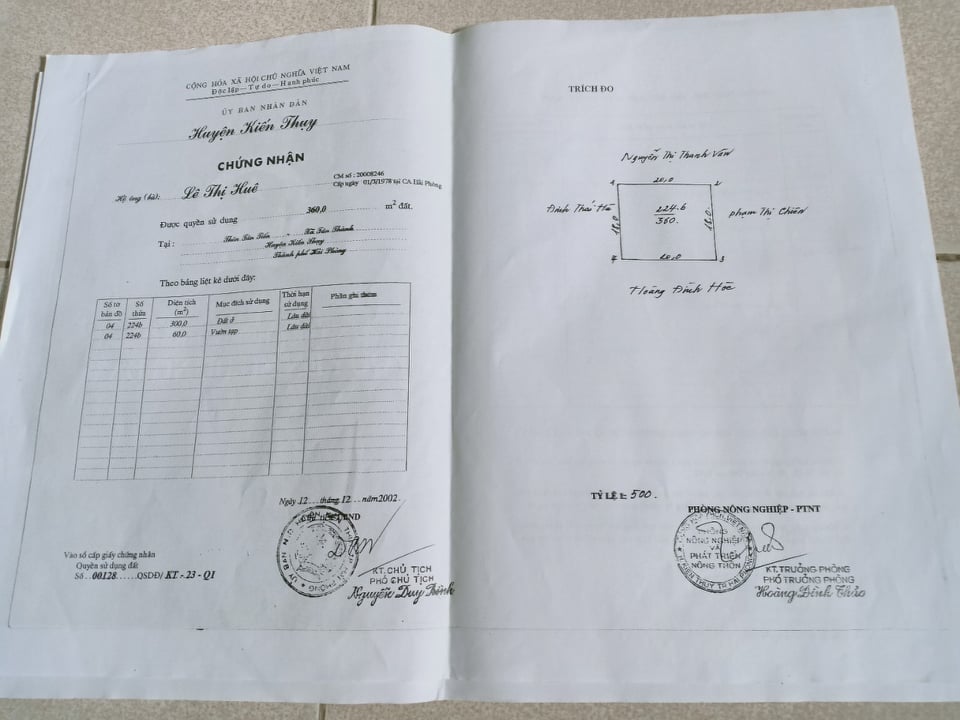 CỘNG HÒA XÃ HỘI CHỦ NGHĨA VIỆT NAM
Độc lập - Tự do - Hạnh phúc
ỦY BAN NHÂN DÂN
Huyện Kiến Thụy
CHỨNG NHẬN
Hộ ông (bà): Lê Thị Huê
CM số : 20008246
Cấp ngày 01/3/1978 tại CA. Hải Phòng
Được quyền sử dụng 360,0 m² đất.
Tại : Thôn Tân Tiến - Xã Tân Thành
Huyện Kiến Thụy
Thành phố Hải Phòng
Theo bảng liệt kê dưới đây:
Số tờ bản đồ Số thửa Diện tích (m²) Mục đích sử dụng Thời hạn sử dụng Phần ghi thêm
04 224b 300,0 Đất ở Lâu dài
04 224b 60,0 Vườn tạp Lâu dài
Ngày 12 tháng 12 năm 2002
UBND
KT. CHỦ TỊCH
PHÓ CHỦ TỊCH
Nguyễn Duy
Vào sổ cấp giấy chứng nhận
Quyền sử dụng đất
Số 00128 QSDĐ/ KT - 23 - Q1
TRÍCH ĐO
Nguyễn Thị Thanh Vân
1 20,0 2
Đinh Thái Hà 18,0 224.b 18,0 phạm Thị Chiên
360.
4 20,0 3
Hoàng Đình Hòe
TỶ LỆ 1: 500.
PHÒNG NÔNG NGHIỆP - PTNT
PHÒNG
NÔNG NGHIỆP
VÀ
PHÁT TRIỂN
NÔNG THÔN
KT. TRƯỞNG PHÒNG
PHÓ TRƯỞNG PHÒNG
Hoàng Đình Thảo